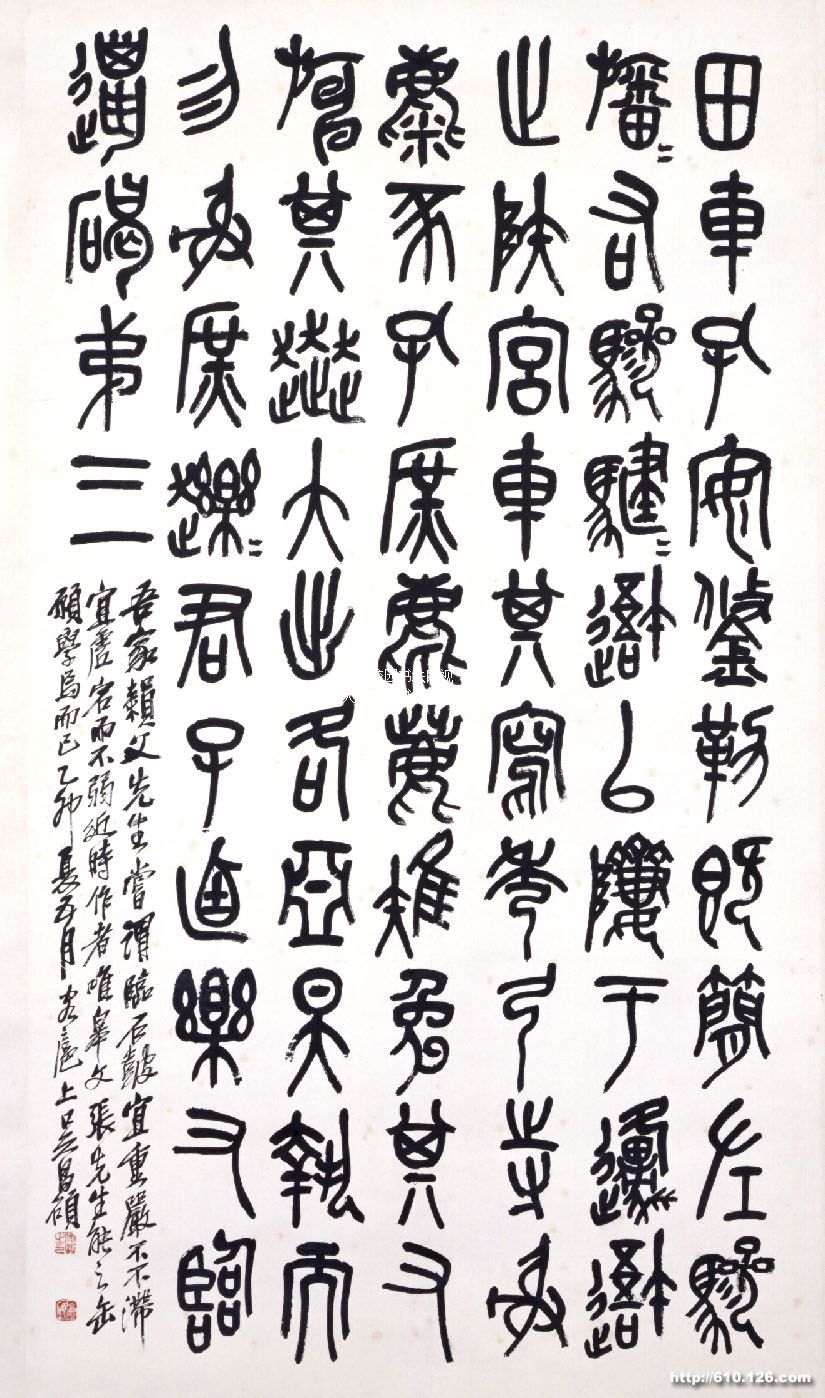 田車孔安鋚勒既簡左驂
旛=右驂騝=䢔以隮于邍䢔
止陝宮車其寫秀弓寺射
麋豕孔庶麀鹿雉兔其又
其大出各亞昊執而
勿射庶趮=君子逌樂又臨
邋碣弟三
吾家先生嘗謂臨石鼓宜重嚴而不滯
宜虛宕而不弱近時作者唯皋文張先生能之缶
願學焉而已乙卯夏五月客扈上吳昌碩
http://610.126.com